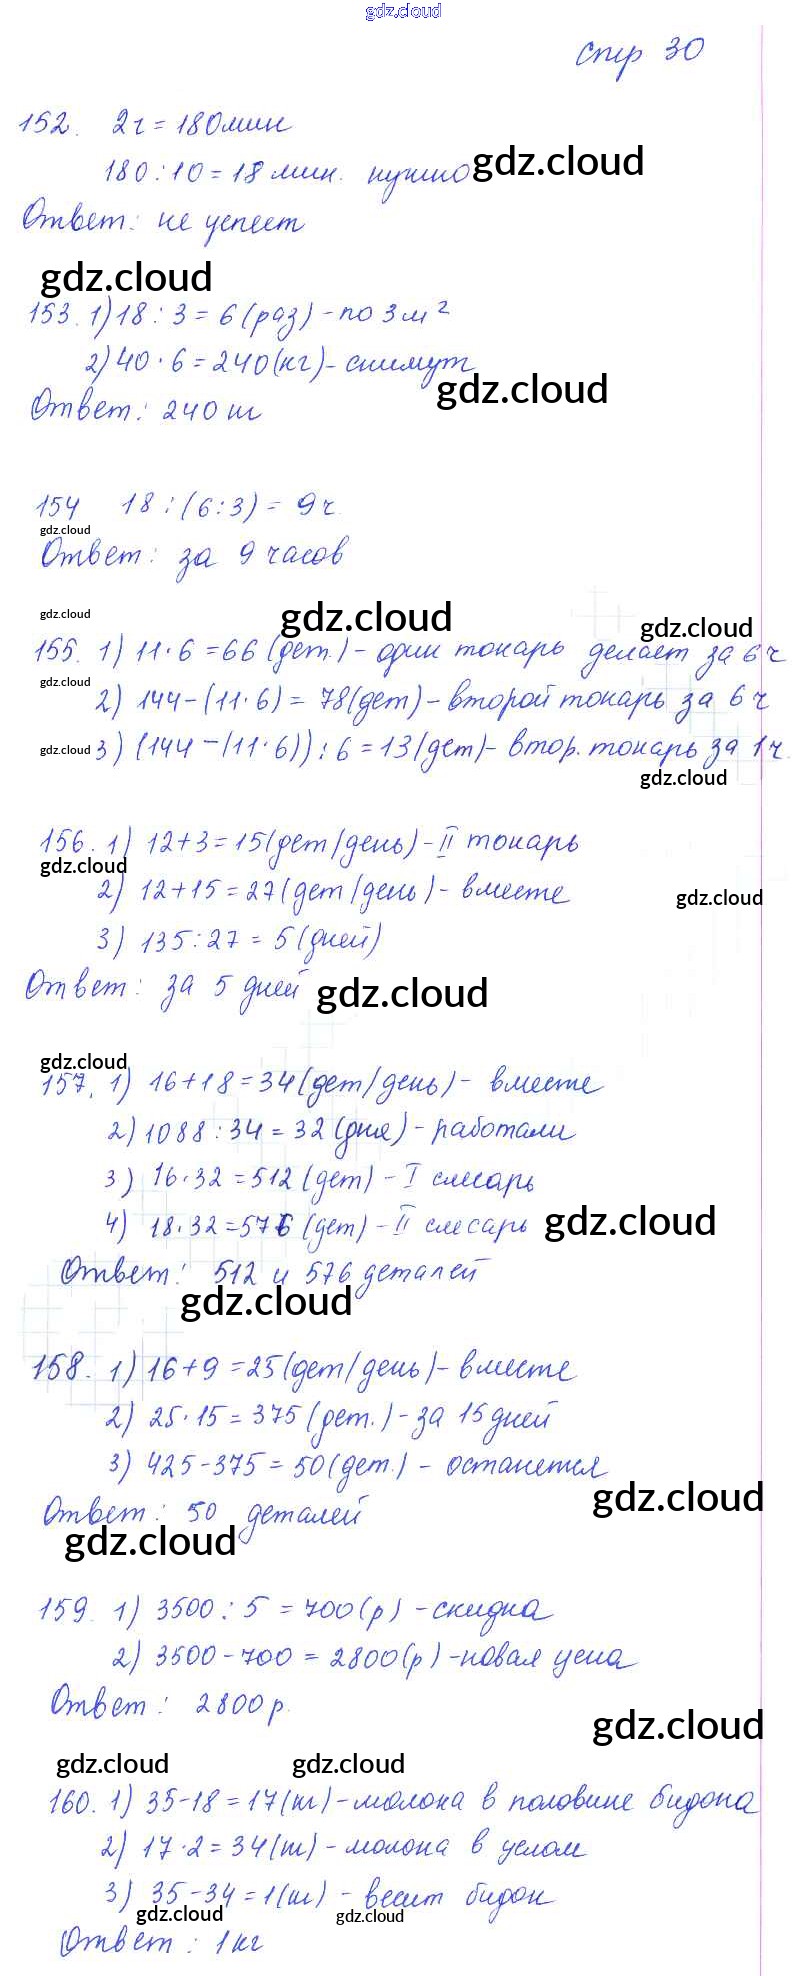 gdz.cloud
стр 30
152. 2ч = 180мин
180:10 = 18 мин. нужно gdz.cloud
Ответ: не успеет
gdz.cloud
153. 1) 18 : 3 = 6 (раз) - по 3 м²
2) 40 · 6 = 240 (кг) - снимут
gdz.cloud
Ответ: 240 кг
154 18 : (6:3) = 9 ч.
gdz.cloud
Ответ: за 9 часов
gdz.cloud gdz.cloud gdz.cloud
155. 1) 11·6 = 66 (дет.) - один токарь делает за 6 ч
gdz.cloud
2) 144 - (11·6) = 78 (дет) - второй токарь за 6 ч
gdz.cloud 3) (144 - (11·6)) : 6 = 13 (дет) - втор. токарь за 1 ч.
gdz.cloud
156. 1) 12+3 = 15 (дет/день) - II токарь
gdz.cloud
2) 12+15 = 27 (дет/день) - вместе
gdz.cloud
3) 135:27 = 5 (дней)
Ответ: за 5 дней gdz.cloud
gdz.cloud
157. 1) 16+18 = 34 (дет/день) - вместе
2) 1088 : 34 = 32 (дня) - работали
3) 16·32 = 512 (дет) - I слесарь
4) 18·32 = 576 (дет) - II слесарь gdz.cloud
Ответ: 512 и 576 деталей
gdz.cloud
158. 1) 16+9 = 25 (дет/день) - вместе
2) 25·15 = 375 (дет.) - за 15 дней
3) 425-375 = 50 (дет.) - останется
gdz.cloud
Ответ: 50 деталей
gdz.cloud
159. 1) 3500 : 5 = 700 (р) - скидка
2) 3500-700 = 2800 (р) - новая цена
Ответ: 2800 р.
gdz.cloud
gdz.cloud gdz.cloud
160. 1) 35-18 = 17 (кг) - молока в половине бидона
2) 17·2 = 34 (кг) - молока в целом
3) 35-34 = 1 (кг) - весит бидон
gdz.cloud gdz.cloud
Ответ: 1 кг